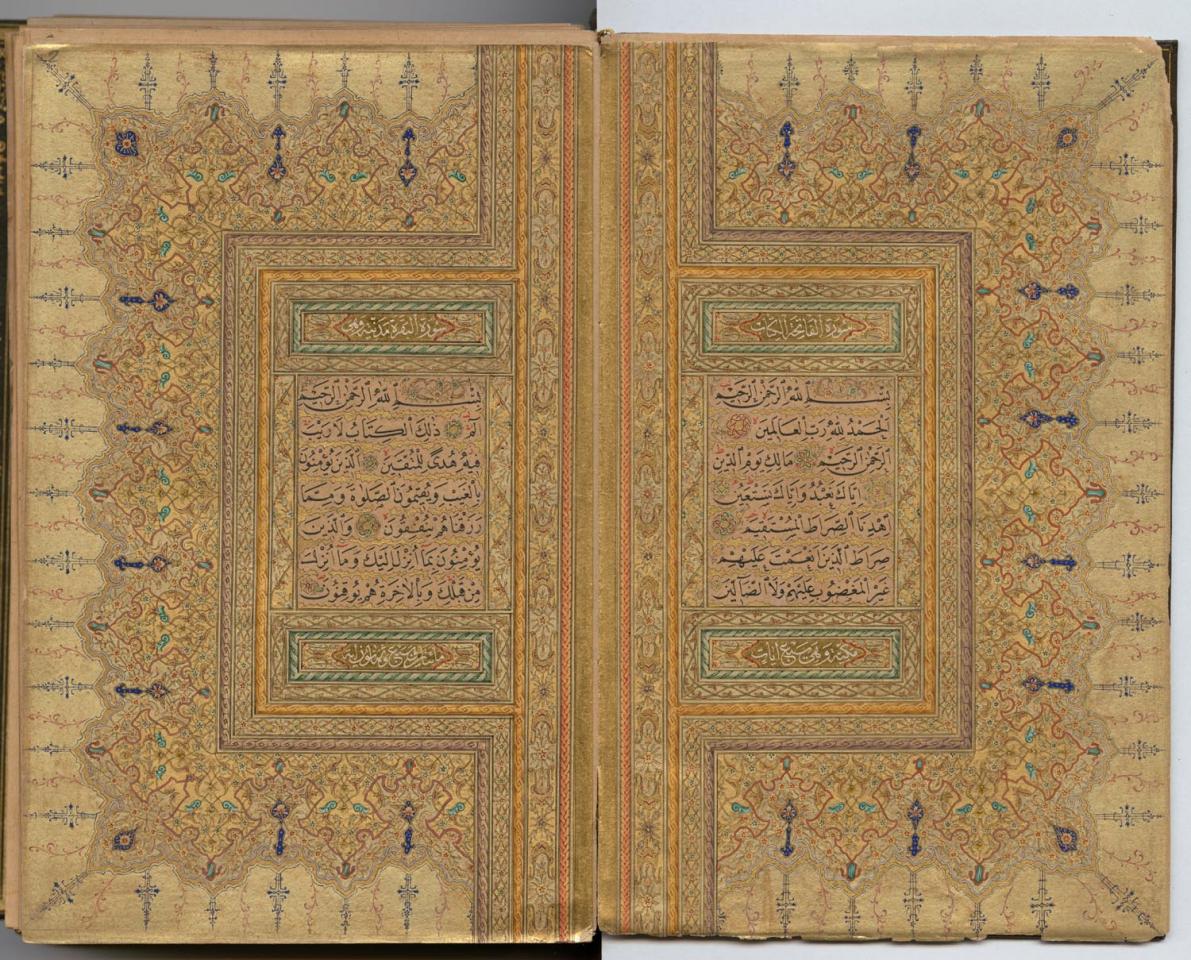 سورة الفاتحة الكتاب
بِسْمِ اللَّهِ الرَّحْمَٰنِ الرَّحِيمِ
الْحَمْدُ لِلَّهِ رَبِّ الْعَالَمِينَ
الرَّحْمَٰنِ الرَّحِيمِ مَالِكِ يَوْمِ الدِّينِ
إِيَّاكَ نَعْبُدُ وَإِيَّاكَ نَسْتَعِينُ
اهْدِنَا الصِّرَاطَ الْمُسْتَقِيمَ
صِرَاطَ الَّذِينَ أَنْعَمْتَ عَلَيْهِمْ
غَيْرِ الْمَغْضُوبِ عَلَيْهِمْ وَلَا الضَّالِّينَ
مكية وهي سبع آيات
سورة البقرة مدنية وهي
بِسْمِ اللَّهِ الرَّحْمَٰنِ الرَّحِيمِ
الم ذَٰلِكَ الْكِتَابُ لَا رَيْبَ
فِيهِ هُدًى لِلْمُتَّقِينَ الَّذِينَ يُؤْمِنُونَ
بِالْغَيْبِ وَيُقِيمُونَ الصَّلَوٰةَ وَمِمَّا
رَزَقْنَاهُمْ يُنْفِقُونَ وَالَّذِينَ
يُؤْمِنُونَ بِمَا أُنْزِلَ إِلَيْكَ وَمَا أُنْزِلَ
مِنْ قَبْلِكَ وَبِالْآخِرَةِ هُمْ يُوقِنُونَ